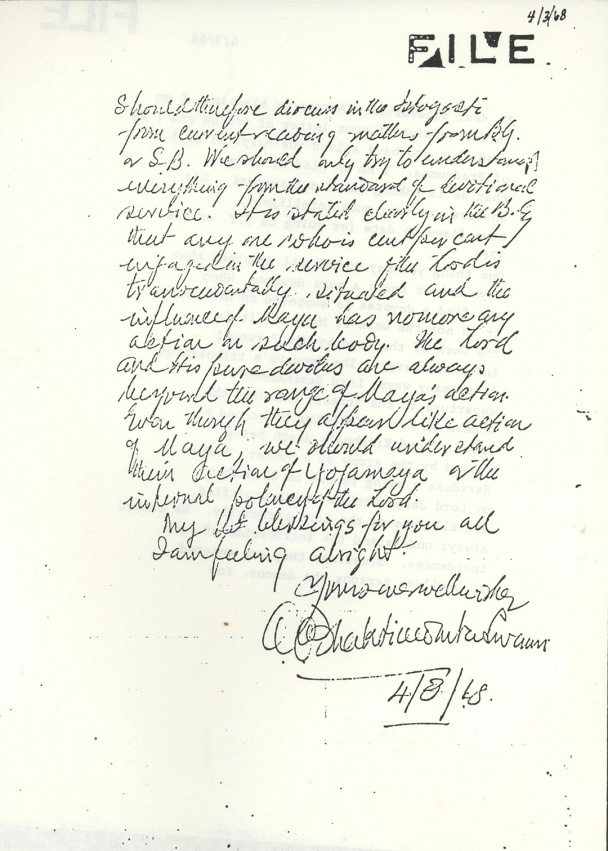 4/3/68
FILE
Should therefore discuss in the Istagosti
from current reading matters from B.G.
or S.B. We should only try to understand
everything from the standard of devotional
service. It is stated clearly in the B.G
that any one who is cent per cent
engaged in the service of the Lord is
transcendentally situated and the
influence of Maya has no more any
action on such body. The Lord
and His pure devotees are always
beyond the range of Maya's action.
Even though they appear like action
of Maya, we should understand
their action of Yogamaya or the
internal potency of the Lord.
My blessings for you all
I am feeling alright.
Your ever well wisher
A.C. Bhaktivedanta Swami
4/3/68.